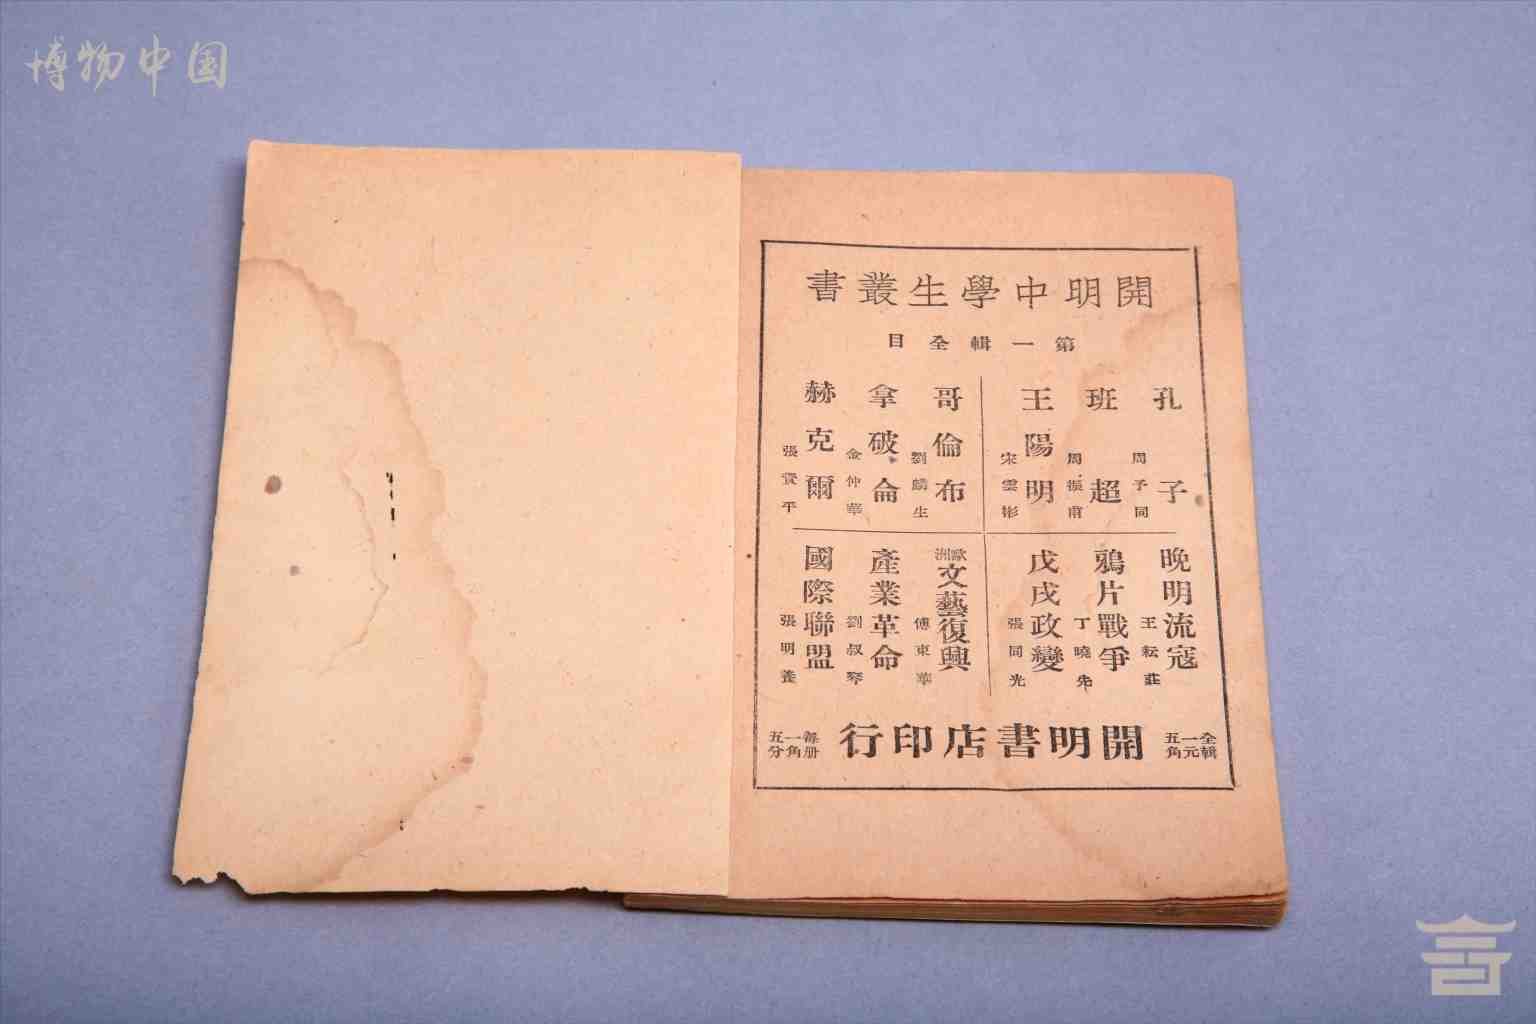 博物中国
開明中學生叢書
第一輯全目
孔子
周予同
班超
周振甫
王陽明
宋雲彬
哥倫布
劉麟生
拿破侖
金仲華
赫克爾
張資平
晚明流寇
王耘莊
鴉片戰爭
丁曉先
戊戌政變
張同光
歐洲文藝復興
傅東華
產業革命
劉叔琴
國際聯盟
張明養
全輯一元五角
開明書店印行
每册一角五分